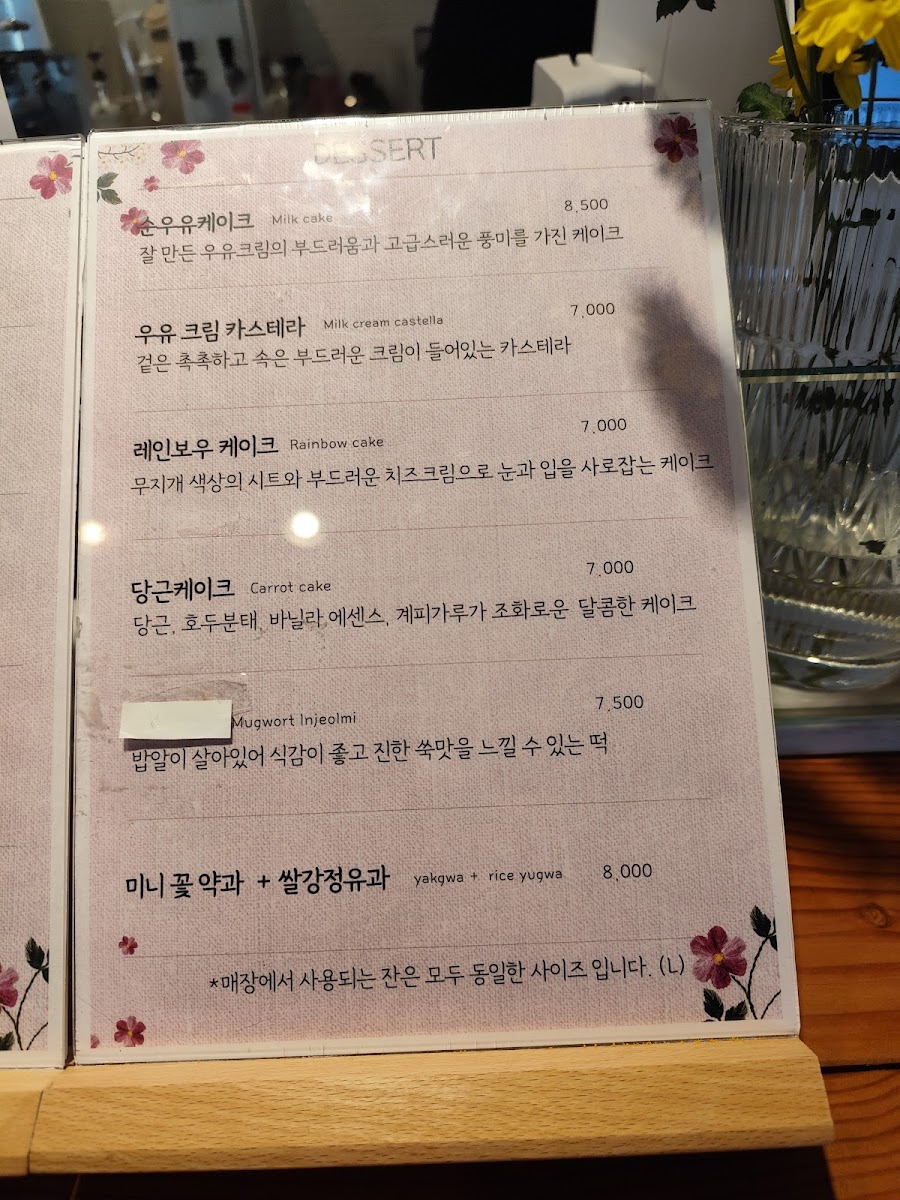 DESSERT
순우유케이크 Milk cake 8,500
잘 만든 우유크림의 부드러움과 고급스러운 풍미를 가진 케이크
우유 크림 카스테라 Milk cream castella 7,000
겉은 촉촉하고 속은 부드러운 크림이 들어있는 카스테라
레인보우 케이크 Rainbow cake 7,000
무지개 색상의 시트와 부드러운 치즈크림으로 눈과 입을 사로잡는 케이크
당근케이크 Carrot cake 7,000
당근, 호두분태, 바닐라 에센스, 계피가루가 조화로운 달콤한 케이크
Mugwort Injeolmi 7,500
밥알이 살아있어 식감이 좋고 진한 쑥맛을 느낄 수 있는 떡
미니 꽃 약과 + 쌀강정유과 yakgwa + rice yugwa 8,000
*매장에서 사용되는 잔은 모두 동일한 사이즈 입니다. (L)